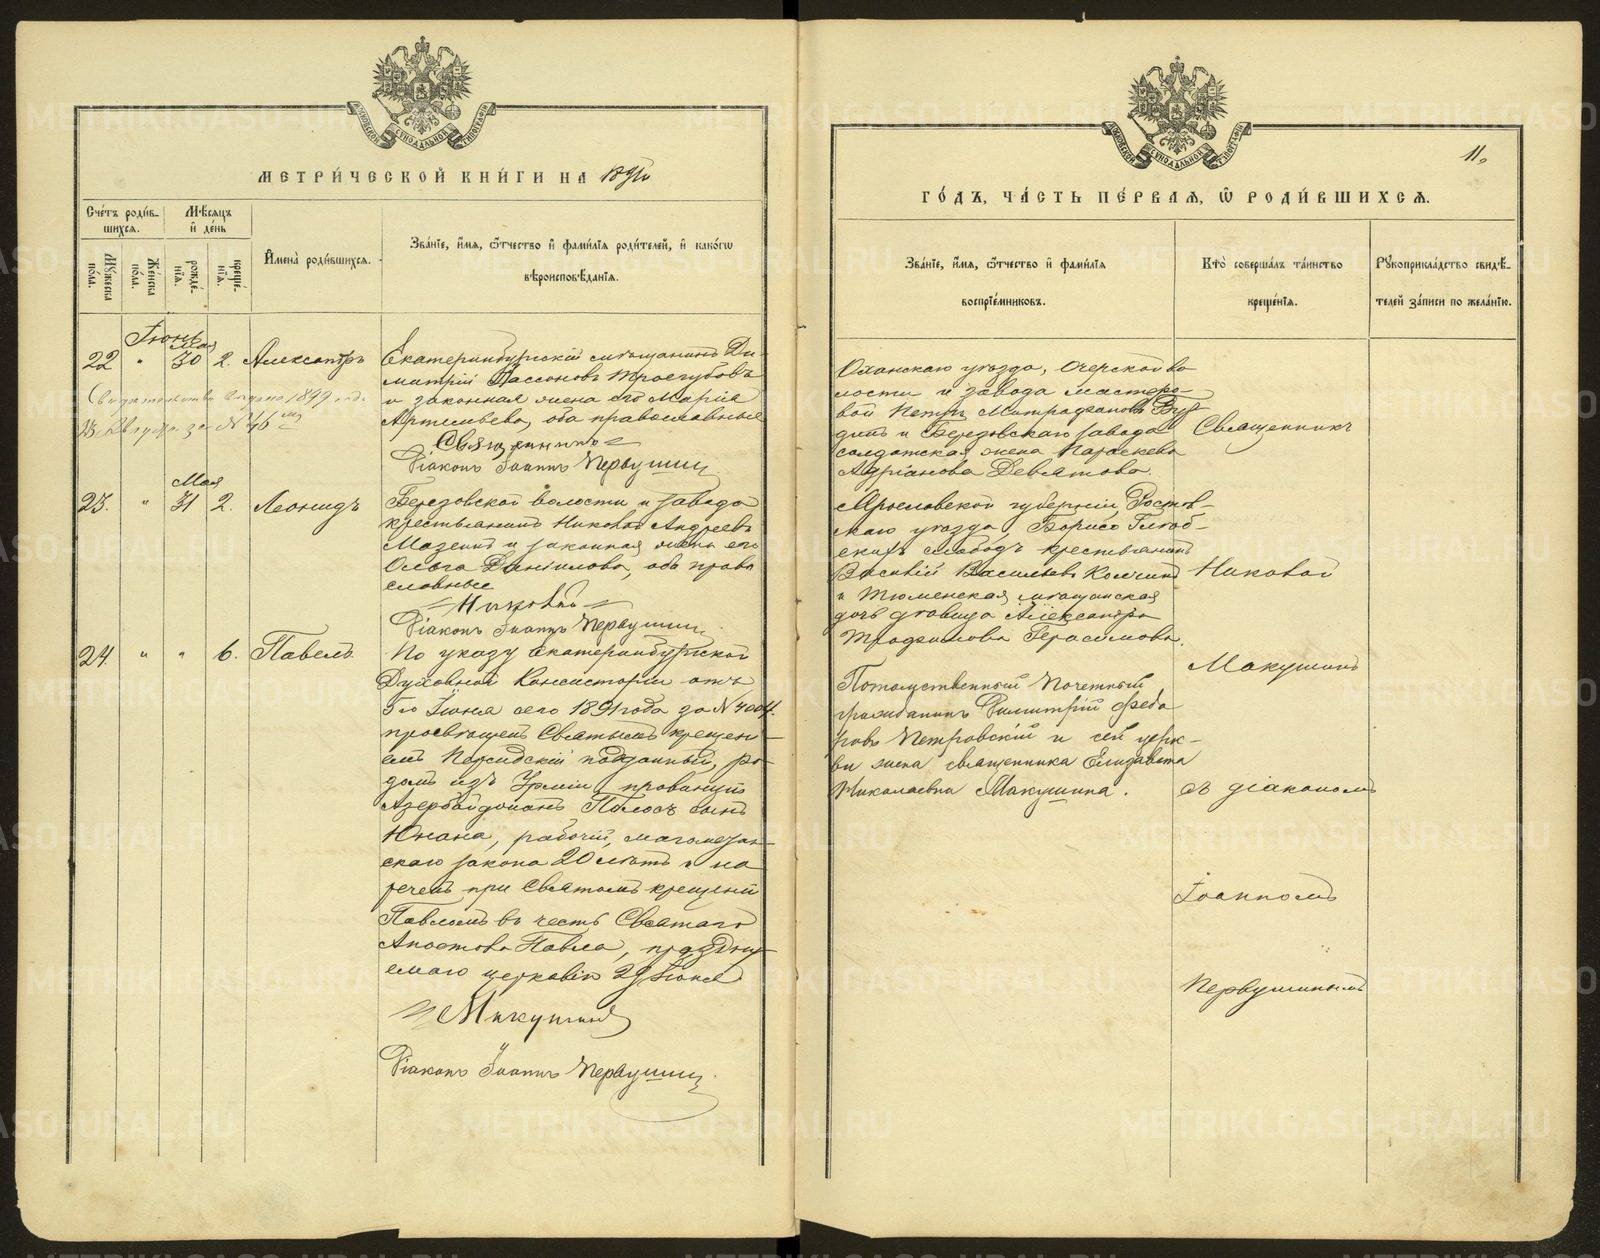 МОСКОВСКОЙ СѴНОДАЛЬНОЙ ТИПОГРАФІИ
МЕТРИ́ЧЕСКОЙ КНИ́ГИ НА 1891
Сче́тъ роди́в-
шихся.
Мѣ́сяцъ
и҆ де́нь
Мꙋ́жеска
по́ла.
Же́нска
по́ла.
рожде́-
нїя.
креще́-
нїя.
И҆мена̀ роди́вшихся.
Зва́нїе, и҆́мя, ѻ҆́тчество и҆ фами́лїя роди́телей, и҆ како́гѡ
вѣроисповѣ́данїя.
Іюнь
22 " Мая 30 2. Александръ
Екатеринбургскій мѣщанинъ Ди-
митрій Пассоновъ Троегубовъ
и законная жена его Марія
Артемьева, оба православные
Свидетельство выдано 1899 года
за № 46
Священникъ
Діаконъ Іоаннъ Первушинъ
23. " Мая 31 2. Леонидъ
Березовской волости и завода
крестьянинъ Николай Андреевъ
Мазеинъ и законная жена его
Ольга Даніилова, оба право
славные
Николай
Діаконъ Іоаннъ Первушинъ
24. " " 6. Павелъ
По указу Екатеринбургской
Духовной Консисторіи отъ
5го Іюня сего 1891 года за № 4004.
просвѣщенъ Святымъ крещені-
емъ Персидскій подданный, ро-
домъ изъ Урміи, провинціи
Азербайджанъ Полосъ сынъ
Юнана, рабочій, магометан-
скаго закона 20 лѣтъ и на
реченъ при Святомъ крещеніи
Павломъ въ честь Святаго
Апостола Павла, праздну-
емаго церковію 29 Іюня
Макушинъ
Діаконъ Іоаннъ Первушинъ.
МОСКОВСКОЙ СѴНОДАЛЬНОЙ ТИПОГРАФІИ
11.
ГО́ДЪ, ЧА́СТЬ ПЕ́РВАЯ, Ѡ҆ РОДИ́ВШИХСЯ.
Зва́нїе, и҆́мя, ѻ҆́тчество и҆ фами́лїя
воспрїе́мниковъ.
Кто̀ соверша́лъ та́инство
креще́нїя.
Рꙋкоприкла́дство свидѣ́-
телей за́писи по жела́нїю.
Оханскаго уѣзда, Очерской во
лости и завода мастеро-
вой Петръ Митрофановъ
и Березовскаго завода
солдатская жена Параскева
Адріанова Девятова.
Священникъ
Ярославской губерніи, Ростов-
скаго уѣзда, Борисо Глѣб-
скихъ слободъ крестьянинъ
Василій Васильевъ
и Тюменская мѣщанская
дочь дѣвица Александра
Трофимова Герасимова.
Николай
Макушинъ
Потомственный Почетный
гражданинъ Димитрій Ѳедо
ровъ Петровскій и сей церк-
ви жена священника Елизавета
Николаевна Макушина.
съ діакономъ
Іоанномъ
Первушинымъ
METRIKI.GASO-URAL.RU